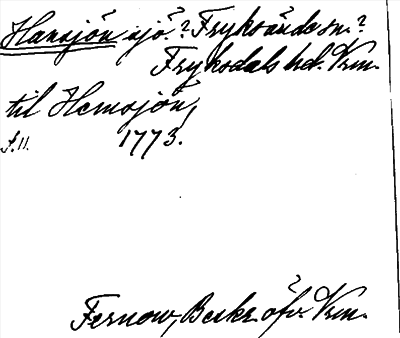 Hansjön sjö? Fryksände sn.?
Fryksdals hd. Vrm.
til Hemsjön,
s. 11. 1773.
Fernow, Beskr. öfv. Vrm.